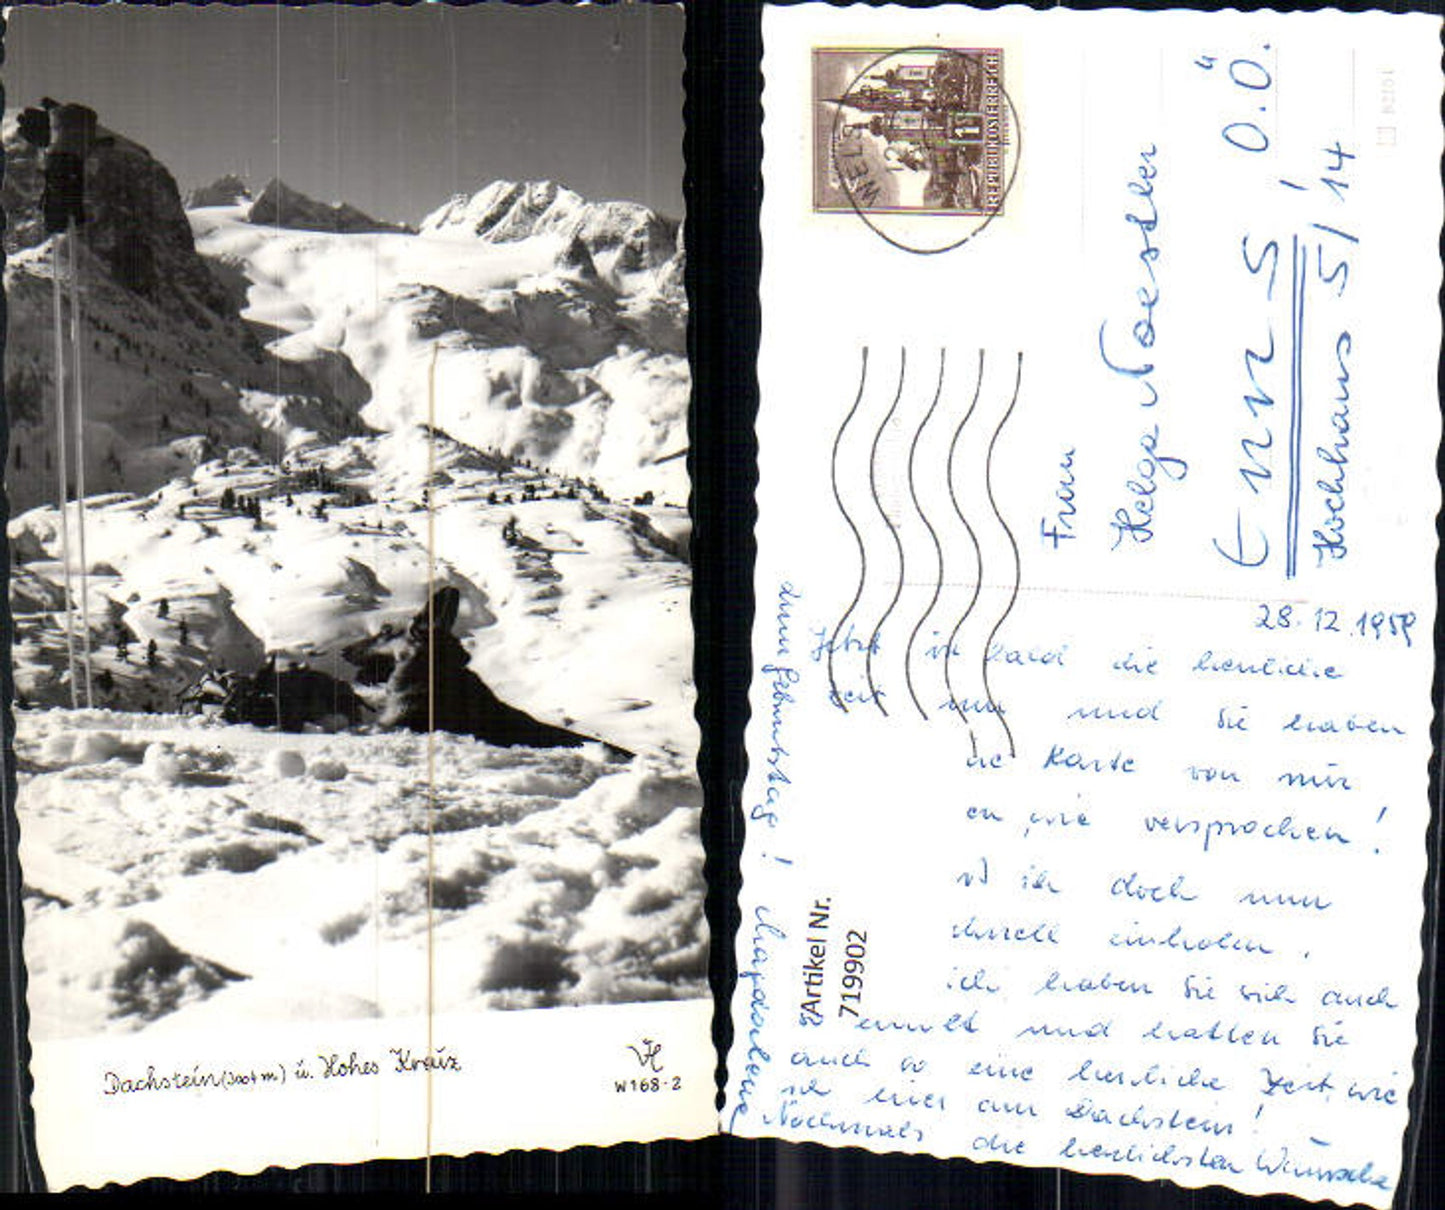 Dachstein (3004 m.) u. Hohes Kreuz
W168-2
REPUBLIK ÖSTERREICH
WELS
Frau
Helga Noestler
Enns, O.Ö.
Hochhaus 5/14
28.12.1959
Jetzt ist bald die herrliche
Zeit um und Sie haben
Karte von mir
en wie versprochen!
ich doch nun
schnell einholen.
ich, haben Sie sich auch
erholt und hatten Sie
auch so eine herrliche Zeit, wie
ich hier am Dachstein!
Nochmals die herzlichsten Wünsche
zum Geburtstag! Magdalena
Artikel Nr.
719902